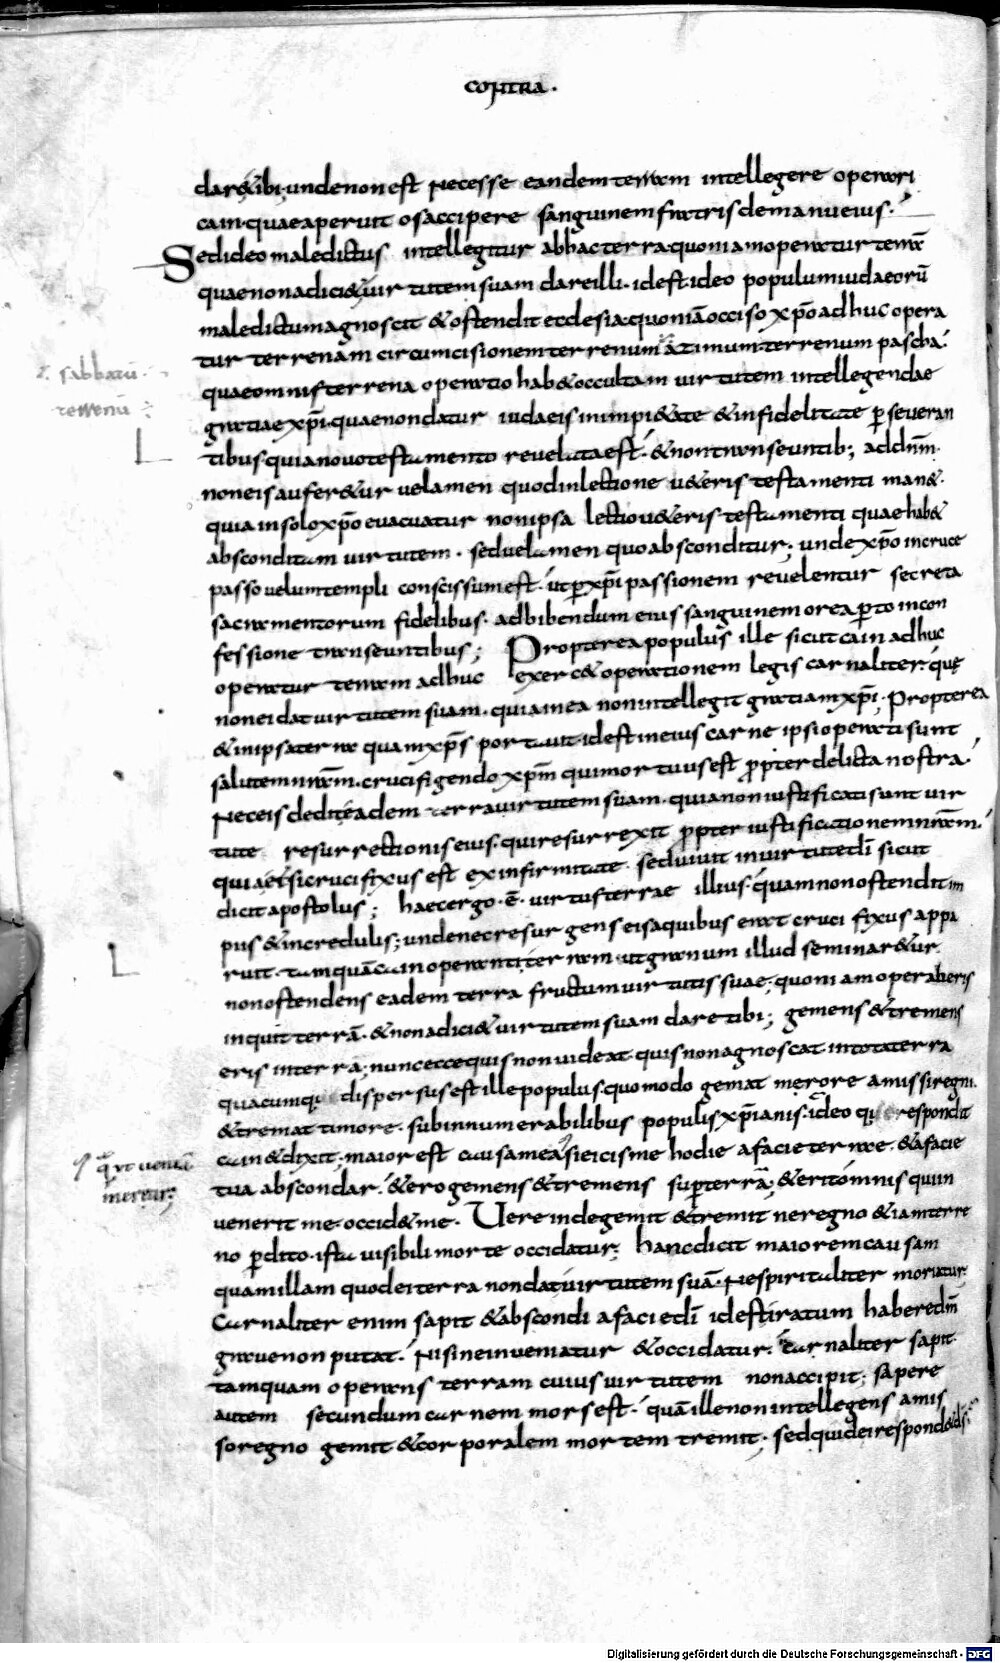 contra.
dar& ibi. unde non est necesse eandem terram intellegere operari
cain. quae aperuit os accipere sanguinem fratris de manu eius.
Sed ideo maledictus intellegitur ab hac terra. quoniam operatur terrā
quae non adici& uirtutem suam dare illi. id est ideo populum iudaeorū
maledictum agnoscit & ostendit ecclesia. quoniā occiso xp̄o adhuc opera
tur terrenam circumcisionem terrenum azimum. terrenum pascha.
sabbatū
terrenū
quae omnis terrena operatio hab& occultam uirtutem intellegendae
gratiae xp̄i. quae non datur iudaeis in impi&ate & infidelitate p̄seueran
tibus quia nouo testamento reuelata est. & non transeuntib; ad dn̄m.
non eis aufer&ur uelamen quod in lectione u&eris testamenti man&.
quia in solo xp̄o euacuatur non ipsa lectio u&eris testamenti quae hab&
absconditam uirtutem. sed uelamen quo absconditur; unde xp̄o in cruce
passo uelum templi conscissum est. ut p̄ xp̄i passionem reuelentur secreta
sacramentorum fidelibus. ad bibendum eius sanguinem ore aperto in con
fessione transeuntibus; Propterea populus ille sicut cain adhuc
operatur terram adhuc exerc& operationem legis carnaliter. quę
non ei dat uirtutem suam. quia in ea non intellegit gratiam xp̄i. Propterea
& in ipsa terra quam xp̄s portauit. id est in eius carne ipsi operati sunt
salutem nr̄am. crucifigendo xp̄m qui mortuus est ppter delicta nostra.
Nec eis dedit eadem terra uirtutem suam. quia non iustificati sunt uir
tute resurrectionis eius. qui resurrexit ppter iustificationem nr̄am.
quia etsi crucifixus est ex infirmitate. sed uiuit in uirtute dī sicut
dicit apostolus; haec ergo. ē. uirtus terrae illius. quam non ostendit im
piis & incredulis; unde nec resurgens eis a quibus erat crucifixus appa
ruit. tamquā cain operanti terram. ut granum illud seminar&ur.
non ostendens eadem terra fructum uirtutis suae; quoniam operaberis
inquit terrā. & non adici& uirtutem suam dare tibi; gemens & tremens
eris in terra; nunc ecce quis non uideat quis non agnoscat. in tota terra
quacumque dispersus est ille populus. quomodo gemat merore amissi regni.
& tremat timore. sub innumerabilibus populis xp̄ianis. ideo respondit
cain & dixit. maior est causa mea si eicis me hodie a facie terrae. & a facie
tua abscondar. & ero gemens & tremens sup̄ terrā; & erit omnis qui in
uenerit me. occid& me. Vere inde gemit & tremit ne regno & iam terre
no p̄dito. ista uisibili morte occidatur; hanc dicit maiorem causam
quam illam quod ei terra non dat uirtutem suā. Ne spiritaliter moriatur.
Carnaliter enim sapit & abscondi a facie dī id est iratum habere dm̄
graue non putat. Nisi ne inueniatur & occidatur. Carnaliter sapit.
tamquam operans terram cuius uirtutem non accipit; sapere
autem secundum carnem mors est. quā ille non intellegens amis
so regno gemit & corporalem mortem tremit. sed quid ei respond& ds̄.